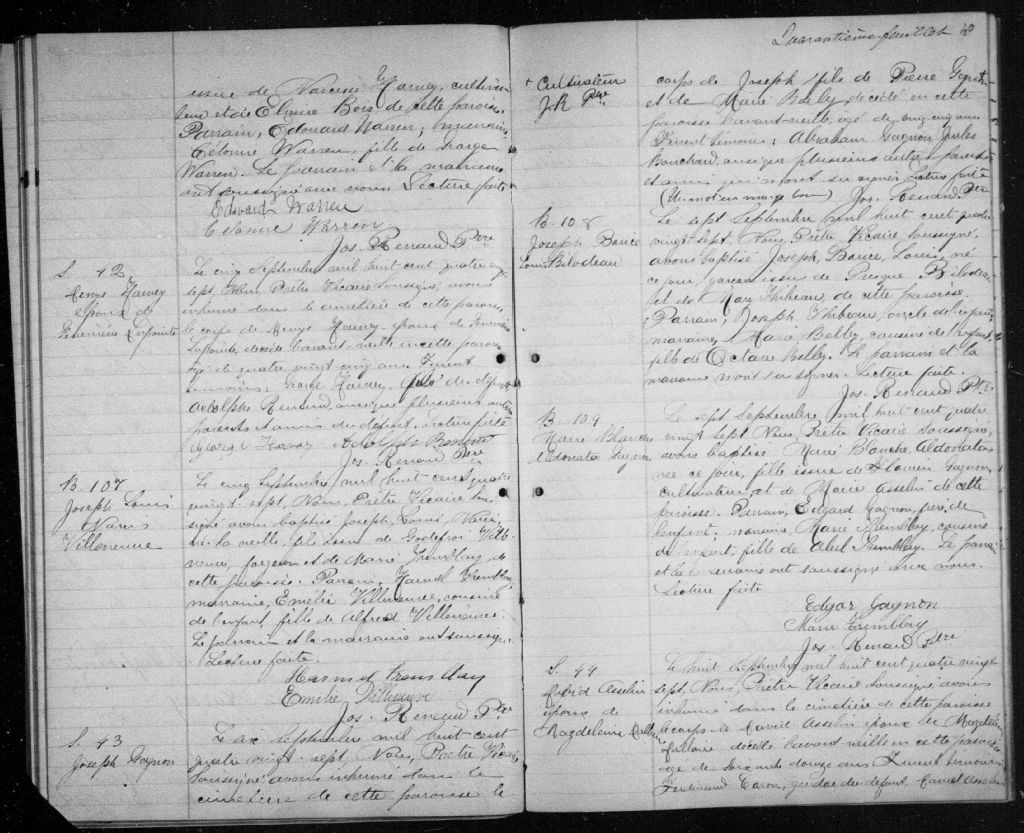 issue de Narcisse Harvey, cultiva-
teur et de Elmire Bois de cette paroisse.
Parrain, Edouard Warren; marraine,
Célanire Warren, fille de George
Warren. Le parrain et la marraine
ont soussigné avec nous. Lecture faite
Edward Warren
Célanire Warren
Jos. Renaud Ptre
S. 42
Harvey
époux de
Lapointe
Le cinq septembre mil huit cent quatre vingt
sept, Nous, Prêtre Vicaire soussigné, avons
inhumé dans le cimetière de cette paroisse
le corps de Harvey époux de
Lapointe, décédé l'avant-veille en cette paroisse
agé de quatre vingt cinq ans. Furent
témoins: George Harvey, fils du défunt,
Adolphe Renaud, ainsi que plusieurs autres
parents et amis du défunt. Lecture faite
George Harvey Adolphe
Jos. Renaud Ptre
B. 107
Joseph Louis
Villeneuve
Le cinq septembre mil huit cent quatre
vingt sept, Nous, Prêtre Vicaire sous-
signé avons baptisé Joseph, Louis,
né la veille, fils issu de Godefroi Ville-
neuve, forgeron et de Marie Tremblay de
cette paroisse. Parrain, Tremblay,
marraine, Emélie Villeneuve, cousine
de l'enfant, fille de Alfred Villeneuve.
Le parrain et la marraine ont soussigné.
Lecture faite.
Tremblay
Emilie Villeneuve
Jos. Renaud Ptre
S. 43
Joseph Gagnon
Le six septembre mil huit cent
quatre vingt-sept, Nous, Prêtre Vicaire
soussigné avons inhumé dans le
cimetière de cette paroisse le
Quarantième feuillet 40
+ Cultivateur
J.R. Ptre
corps de Joseph fils de Pierre
et de Marie Bailly, décédé en cette
paroisse l'avant-veille, agé de cinq ans
Furent témoins: Abraham Gagnon, Jules
Bouchard, ainsi que plusieurs autres parents
et amis qui n'ont su signer. Lecture faite
(Un mot en marge bon) Jos. Renaud Ptre
B. 108
Joseph
Louis Bilodeau
Le sept septembre mil huit cent quatre
vingt sept, Nous, Prêtre Vicaire soussigné,
avons baptisé Joseph, Louis, né
ce jour, garçon issu de Bilodeau
et de Mary Thibeau, de cette paroisse.
Parrain, Joseph Thibeau, oncle de l'enfant,
marraine, Marie Belly, cousine de l'enfant,
fille de Octave Belly. Le parrain et la
marraine n'ont su signer. Lecture faite.
Jos. Renaud Ptre.
B. 109
Marie Blanche
Aldonata Gagnon
Le sept septembre mil huit cent quatre
vingt sept Nous, Prêtre Vicaire soussigné,
avons baptisé Marie Blanche Aldonata
née ce jour, fille issue de Gagnon,
cultivateur et de Marie Asselin de cette
paroisse. Parrain, Edgard Gagnon, frère de
l'enfant, marraine, Marie Tremblay, cousine
de l'enfant, fille de Abel Tremblay. Le parrain
et la marraine ont soussigné avec nous.
Lecture faite
Edgar Gagnon
Marie Tremblay
Jos. Renaud Ptre
S. 44
David Asselin
époux de
Magdeleine
Le huit septembre mil huit cent quatre vingt
sept, Nous, Prêtre Vicaire soussigné avons
inhumé dans le cimetière de cette paroisse
le corps de David Asselin époux de Magdeleine
décédé l'avant veille en cette paroisse
agé de soixante douze ans. Furent témoins
Ferdinand Caron, gendre du défunt, David Asselin